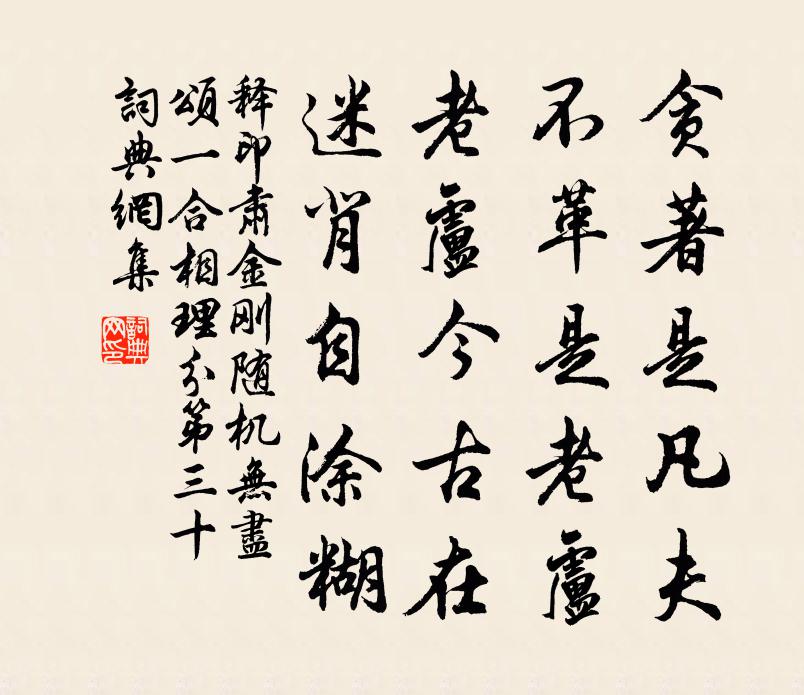 贪著是凡夫
不革是老盧
老盧今古在
迷背自涂糊
释印肃金刚随机無盡
頌一合相理分第三十
詞典網集
詞典网印